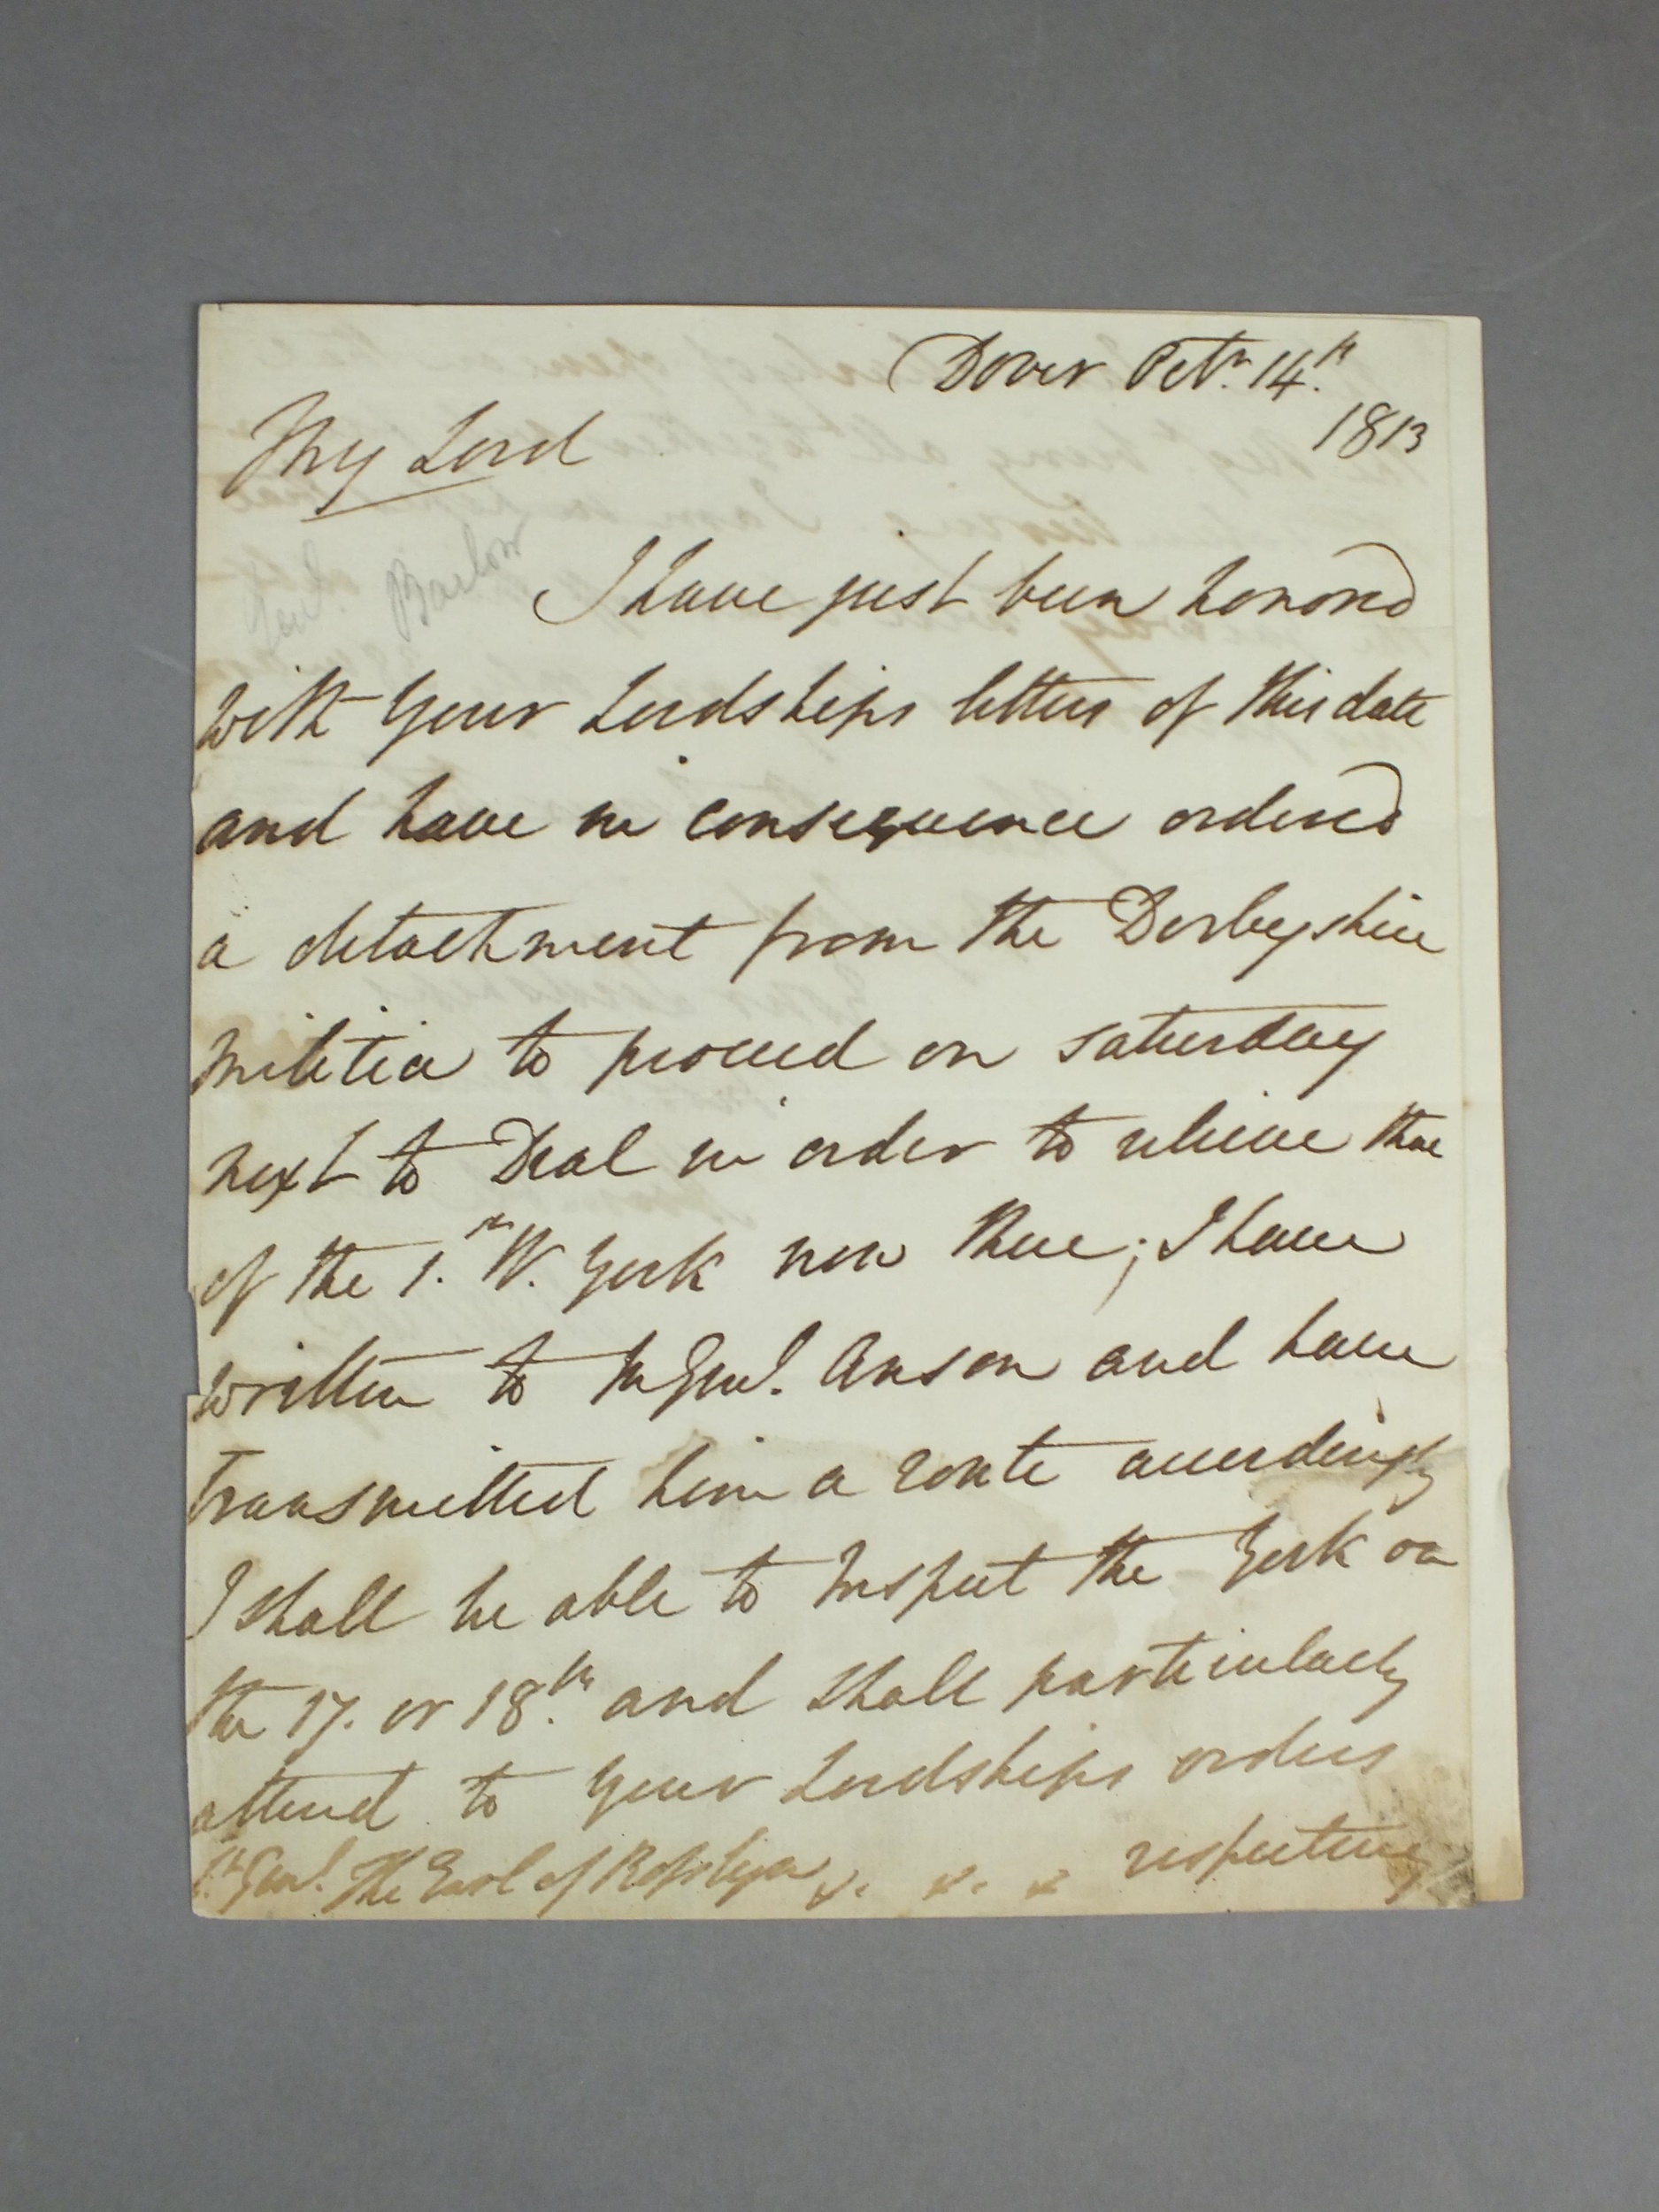 Dover Octr. 14.th
1813
My Lord
Genl. Barlow
I have just been honored
with your Lordships letters of this date
and have in consequence ordered
a detachment from the Derbyshire
militia to proceed on saturday
next to Deal in order to relieve that
of the 1.st W. York now there; I have
written to M Genl. Anson and have
transmitted him a route accordingly
I shall be able to inspect the York on
the 17. or 18.th and shall particularly
attend to your Lordships orders
respecting
Lt Genl. The Earl of Rosslyn &. &. &